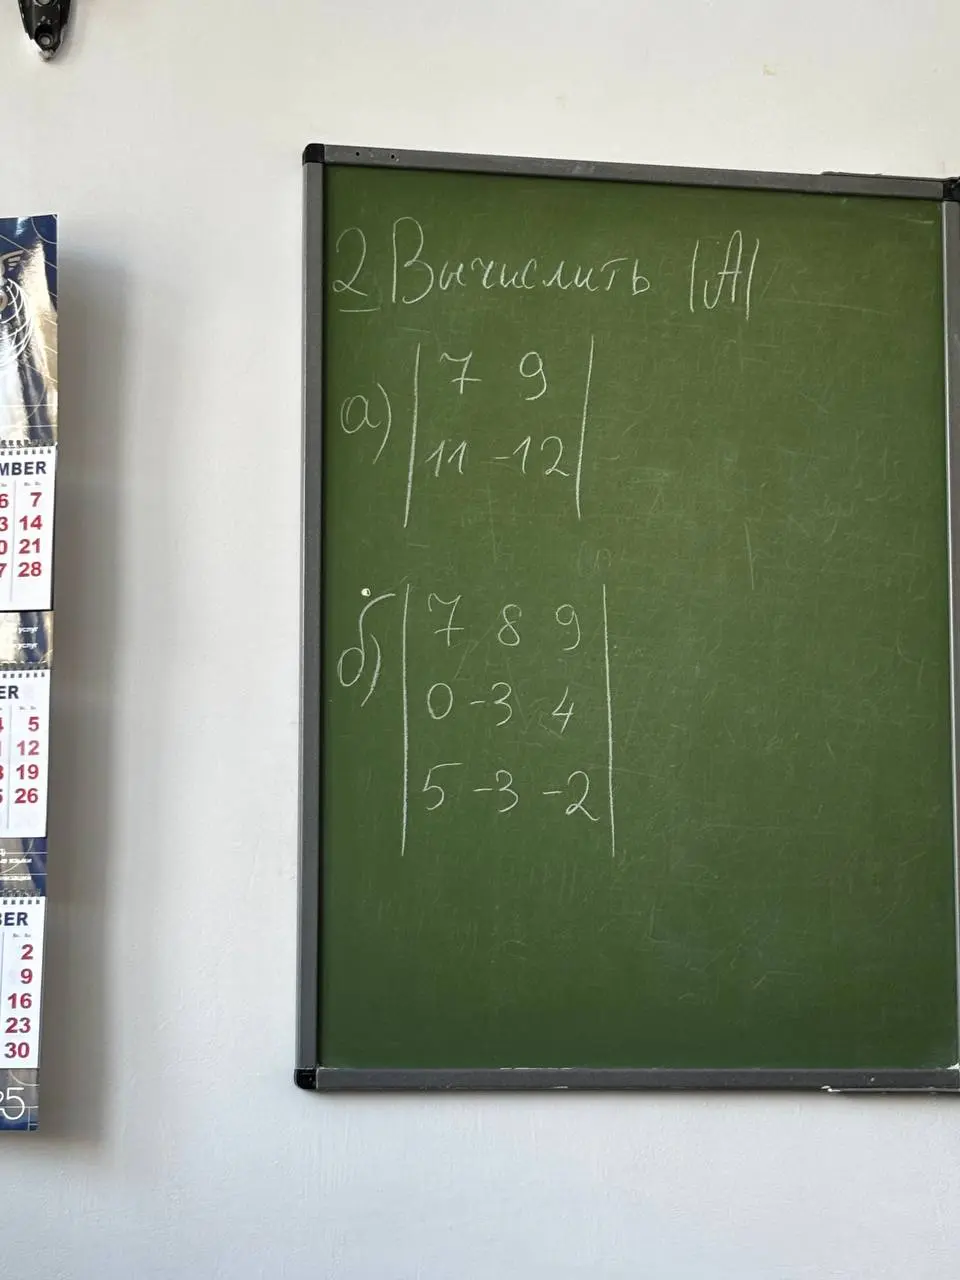 MBER
6 7
3 14
0 21
7 28
ER
4 5
1 12
8 19
5 26
BER
2
9
16
23
30
25
2 Вычислить |A|
а) | 7 9 |
| 11 -12 |
б) | 7 8 9 |
| 0 -3 4 |
| 5 -3 -2 |